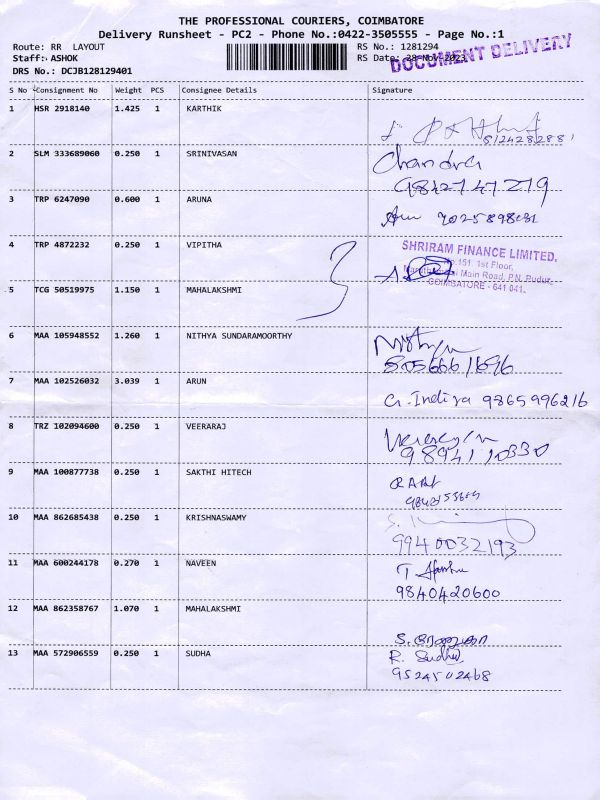 THE PROFESSIONAL COURIERS, COIMBATORE
Delivery Runsheet - PC2 - Phone No.:0422-3505555 - Page No.:1
Route: RR LAYOUT RS No.: 1281294
Staff: ASHOK RS Date: 28-Nov-2023
DOCUMENT DELIVERY
DRS No.: DCJB128129401
S No Consignment No Weight PCS Consignee Details Signature
1 HSR 2918140 1.425 1 KARTHIK
2 SLM 333689060 0.250 1 SRINIVASAN Chandra
9842747279
3 TRP 6247090 0.600 1 ARUNA
4 TRP 4872232 0.250 1 VIPITHA SHRIRAM FINANCE LIMITED,
No.151, 1st Floor,
Main Road, P.N. Pudur,
COIMBATORE - 641 041.
5 TCG 50519975 1.150 1 MAHALAKSHMI
6 MAA 105948552 1.260 1 NITHYA SUNDARAMOORTHY Nithya
8056661696
7 MAA 102526032 3.039 1 ARUN G. Indira 9865996216
8 TRZ 102094600 0.250 1 VEERARAJ
9894110330
9 MAA 100877738 0.250 1 SAKTHI HITECH
10 MAA 862685438 0.250 1 KRISHNASWAMY
9940032193
11 MAA 600244178 0.270 1 NAVEEN
9840420600
12 MAA 862358767 1.070 1 MAHALAKSHMI
13 MAA 572906559 0.250 1 SUDHA R. Sudha
9524502468